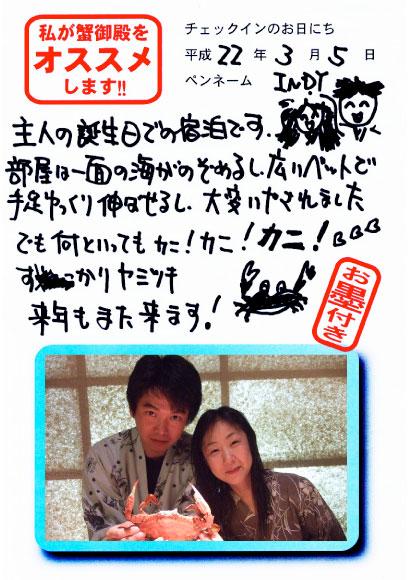 私が蟹御殿を
オススメ
します!!
チェックインのお日にち
平成 22 年 3 月 5 日
ペンネーム INDY
主人の誕生日での宿泊です。
部屋は一面の海がのぞめるし、広いベットで
手足ゆっくり伸ばせるし、大変いやされました
でも何といっても カニ!カニ!カニ!
すっかりヤミツキ
来年もまた来ます!
お墨付き